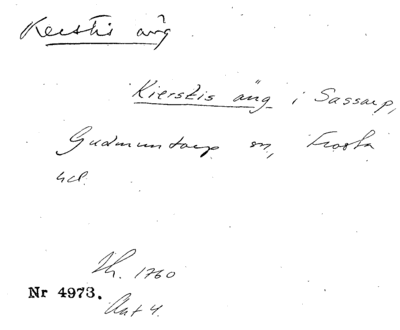 Kerstis äng
Kierstis äng i Sassarp,
Gudmuntorp sn, Frosta
hd.
Th. 1760
Nr 4973.
Akt 4.